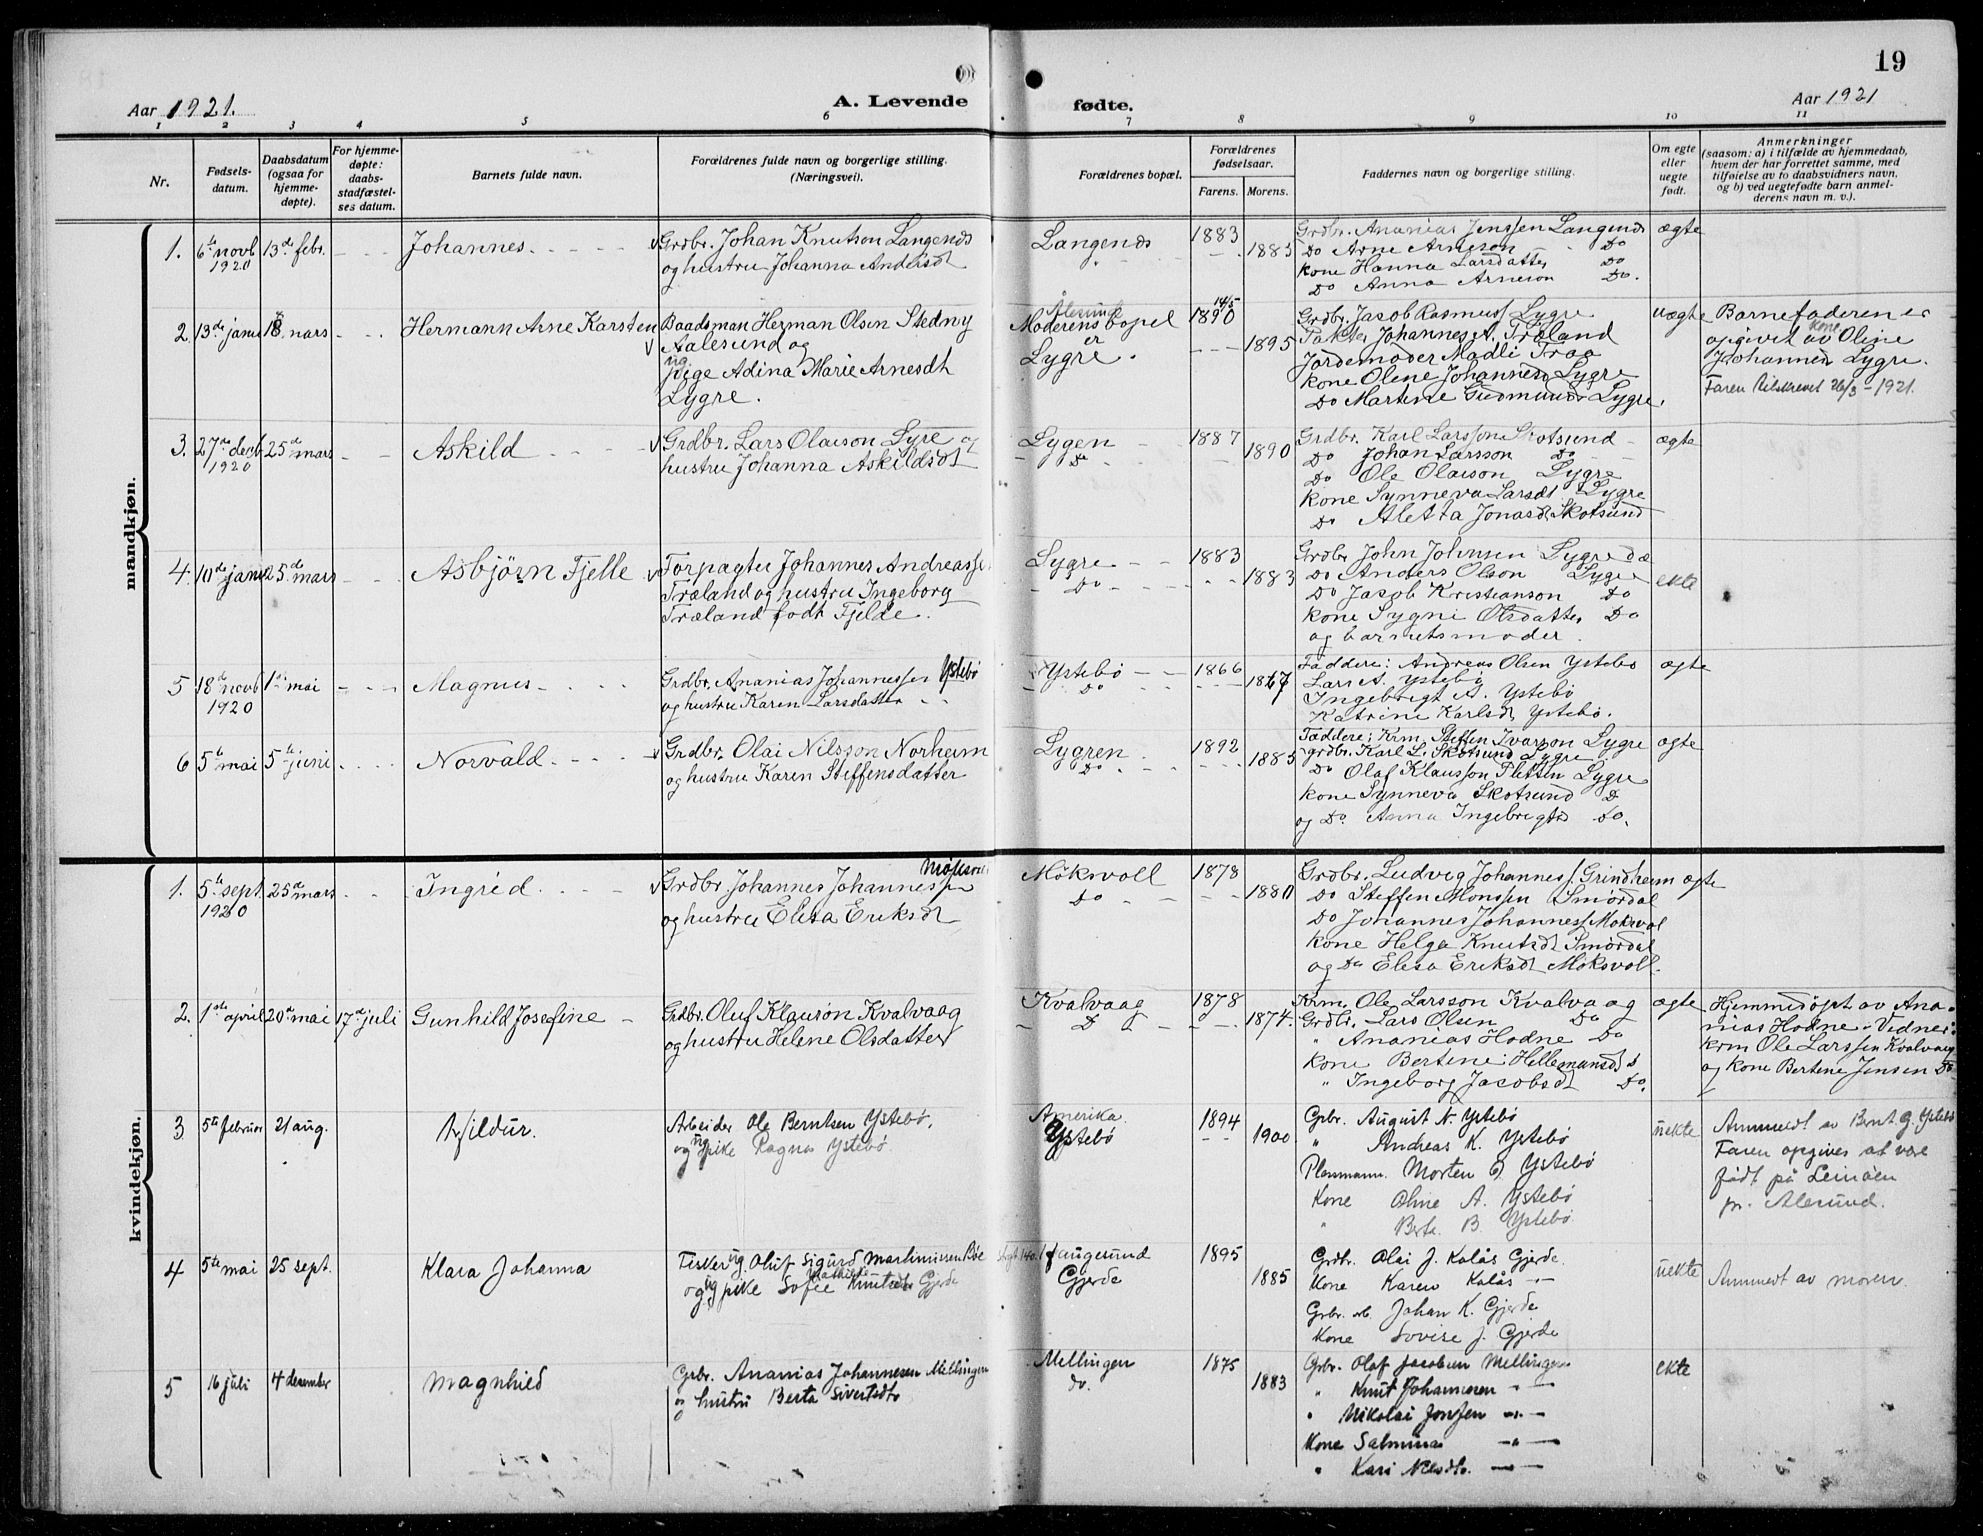 19
Aar 1921.
A. Levende
fødte.
Aar 1921
1 2 3 4 5 6 7 8 9 10 11
Nr.
Fødsels-
datum.
Daabsdatum
(ogsaa for
hjemme-
døpte).
For hjemme-
døpte:
daabs-
stadfæstel-
ses datum.
Barnets fulde navn.
Forældrenes fulde navn og borgerlige stilling.
(Næringsvei).
Forældrenes bopæl.
Forældrenes
fødselsaar.
Farens. Morens.
Faddernes navn og borgerlige stilling.
Om egte
eller
uegte
født.
Anmerkninger
(saasom: a) i tilfælde av hjemmedaab,
hvem der har forrettet samme, med
tilføielse av to daabsvidners navn,
og b) ved uegtefødte barn anmel-
derens navn m. v.).
mandkjøn.
1. 6te novb 1920 13de febr. Johannes
Grdbr. Johan Knutson Langenes
og hustru Johanna Andersdt
Langenes
1883
1885
Grdbr. Ananias Jenssen Langenes
Do Arne Arneson Do
kone Hanna Larsdatter Do
Do Anna Arneson Do.
ægte
2. 13de janu 18 mars Hermann Arne Karsten
Baadsman Herman Olsen Stedny
Aalesund og
ug
pige Adina Marie Arnesdt
Lygre.
Ålesund
Moderens bopel
er
Lygre.
14/5
1890
1895
Grdbr. Jacob Rasmuss Lygre
Johannes A. Træland
Jordemoder Madli Traa
kone Olene Johannesd Lygre
Do Martine Gudmunds Lygre.
uægte
Barnefaderen er
opgivet av kone Oline
Johannesd Lygre.
Faren tilskrevet 26/3 - 1921.
3. 27de decb 1920 25de mars Askild
Grdbr. Lars Olaison Lyre og
hustru Johanna Askildsdt
Lygen
Do
1887
1890
Grdbr. Karl Larsson Skotsund
Do Johan Larsson Do
Do Ole Olaison Lygre
kone Synneva Larsdt Lygre
Do Aletta Jonasdt Skotsund
ægte
4. 10de janu 25de mars Asbjørn Fjelle
Forpagter Johannes Andreasse
Træland og hustru Ingeborg
Træland født Fjelde.
Lygre
Do
1883
1883
Grdbr John Johnsen Lygre
Do Anders Olson Lygre
Do Jacob Kristianson Do
kone Sygni Olsdatter Do
og barnets moder.
ekte
5 18de novb 1920 1ste mai Magnus
Grdbr. Ananias Johannessen Ystebø
og hustru Karen Larsdatter
Ystebö
Do
1866
1867
Faddere: Andreas Olsen Ystebø
Lars A. Ystebø
Ingebrigt A. Ystebö
Katrine Karlsdt Ystebö.
ægte
6 5te mai 5te juni Norvald
Grdbr. Olai Nilsson Norheim
og hustru Karen Steffensdatter
Lygren.
Do
1892
1885
Faddere: Krm. Steffen Ivarson Lygre
grdbr. Karl L. Skotsund Lygre
Do Olaf Klausson Lygre
kone Synneva Skotsund Do
og Do. Anna Ingebrigtsd Do.
ægte
kvindekjøn.
1. 5te sept. 1920 25de mars Ingrid
Grdbr Johannes Johannessen
og hustru Elisa Eriksdt
Möksvoll
Do
1878
1880
Grdbr. Ludvig Johanness. Grindheim
Do Steffen Monssen Smördal
Do Johannes Johanness Moksvol
kone Helga Knutsdt Smördal
og Do Elisa Eriksdt Moksvoll.
ægte
2. 1ste april 20de mai 17de juli Gunhild Josefine
Grdbr. Oluf Klauson Kvalvaag
og hustru Helene Olsdatter
Kvalvaag
Do
1878
1874.
Krm. Ole Larsson Kvalvaag
Grdbr. Lars Olsen Do
" Ananias Hodne Do
kone Bertine Hellemansdt
" Ingeborg Jacobsdt Do.
ægte
Hjemmedöpt av Ana-
nias Hodne. Vidner:
krm Ole Larssen Kvalvaag
og kone Bertine Jensen Do
3 5te februar 21 aug. Hildur.
Arbeider Ole Berntsen Ystebø,
og ug pike Ragna Ystebø.
Amerika
Ystebø
1894
1900
Grbr. August N. Ystebø
" Andreas K. Ystebø
Morten Ystebø
Kone Oline A. Ystebø
" Berta B. Ystebø
uekte
Anmeldt av Bernt G. Ystebø
Faren opgives at være
født på Leinøen
pr. Ålesund.
4 5te mai 25 sept. Klara Johanna
Fisker ug. Oluf Sigurd Martinussen Bøe
og ug pike Sofie Mathilde Knutsdtr Gjerde
Haugesund
Gjerde
1895
1885
Grdbr. Olai J. Kalås Gjerde.
Kone Karen Kalås -"-
Grbr. Johan K. Gjerde
Kone Lovise J. Gjerde
uekte
Anmeldt av moren.
5 16 juli 4 desember Magnhild
Grbr. Ananias Johannesen Mellingen
og hustru Berta Sivertsdtr
Mellingen
do.
1875
1883
Grbr. Olaf Jacobsen Mellingen
" Knut Johannesen -"-
" Nikolai Jonsen -"-
Kone Salmina -"-
" Kari Nilsdtr. -"-
ekte